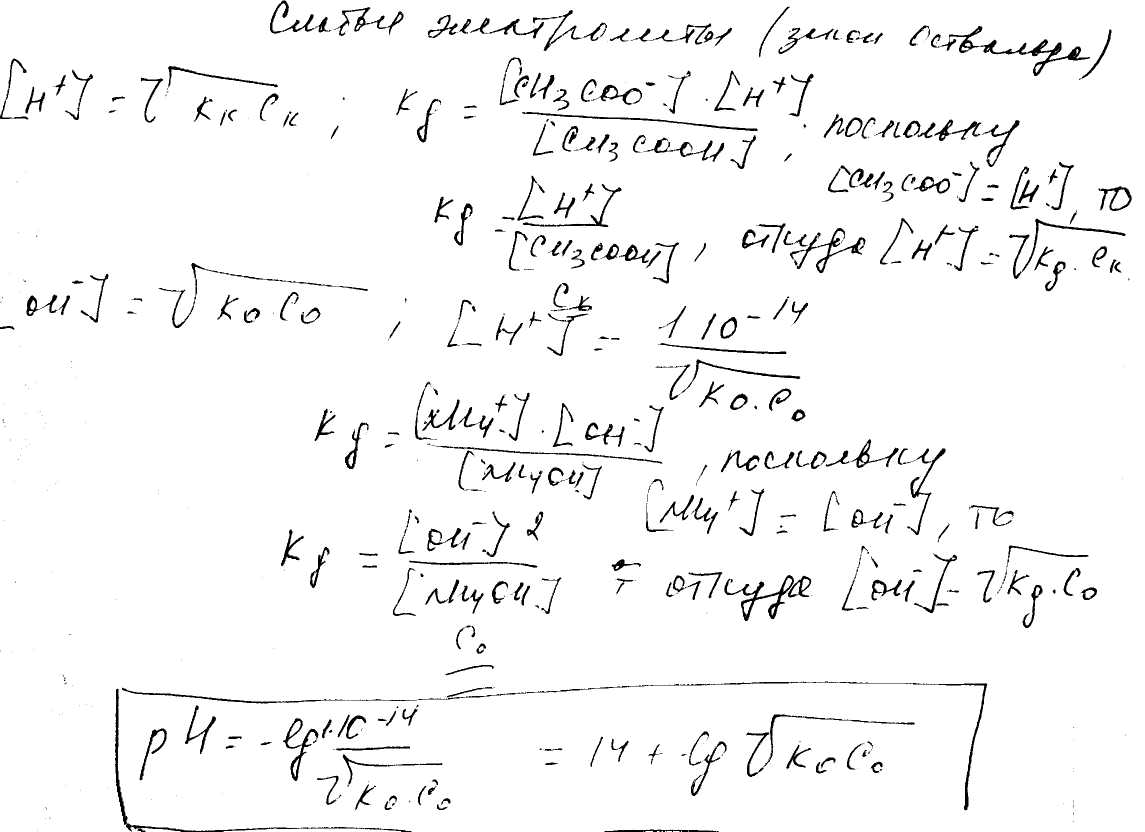 Слабые электролиты (закон Оствальда)
[H⁺] = √KкCк ; Kд = [CH₃COO⁻]·[H⁺] / [CH₃COOH] , поскольку
[CH₃COO⁻] = [H⁺], то
Kд = [H⁺] / [CH₃COOH] , откуда [H⁺] = √Kд·Cк
Cк
[OH⁻] = √KоCо ; [H⁺] = 1 10⁻¹⁴ / √Kо·Cо
Kд = [NH₄⁺]·[OH⁻] / [NH₄OH] , поскольку
[NH₄⁺] = [OH⁻], то
Kд = [OH⁻]² / [NH₄OH] откуда [OH⁻] = √Kд·Cо
Cо
pH = -lg 1·10⁻¹⁴ / √Kо·Cо = 14 + lg √KоCо